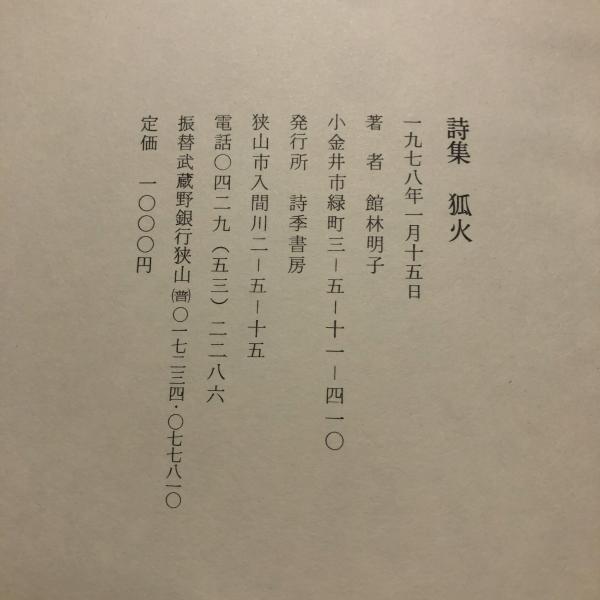 詩集　狐火
一九七八年一月十五日
著　者　館林明子
小金井市緑町三－五－十一－四一〇
発行所　詩季書房
狭山市入間川二－五－十五
電話〇四二九（五三）二二八六
振替武蔵野銀行狭山㈾〇一七二三四・〇七七八一〇
定価　一〇〇〇円